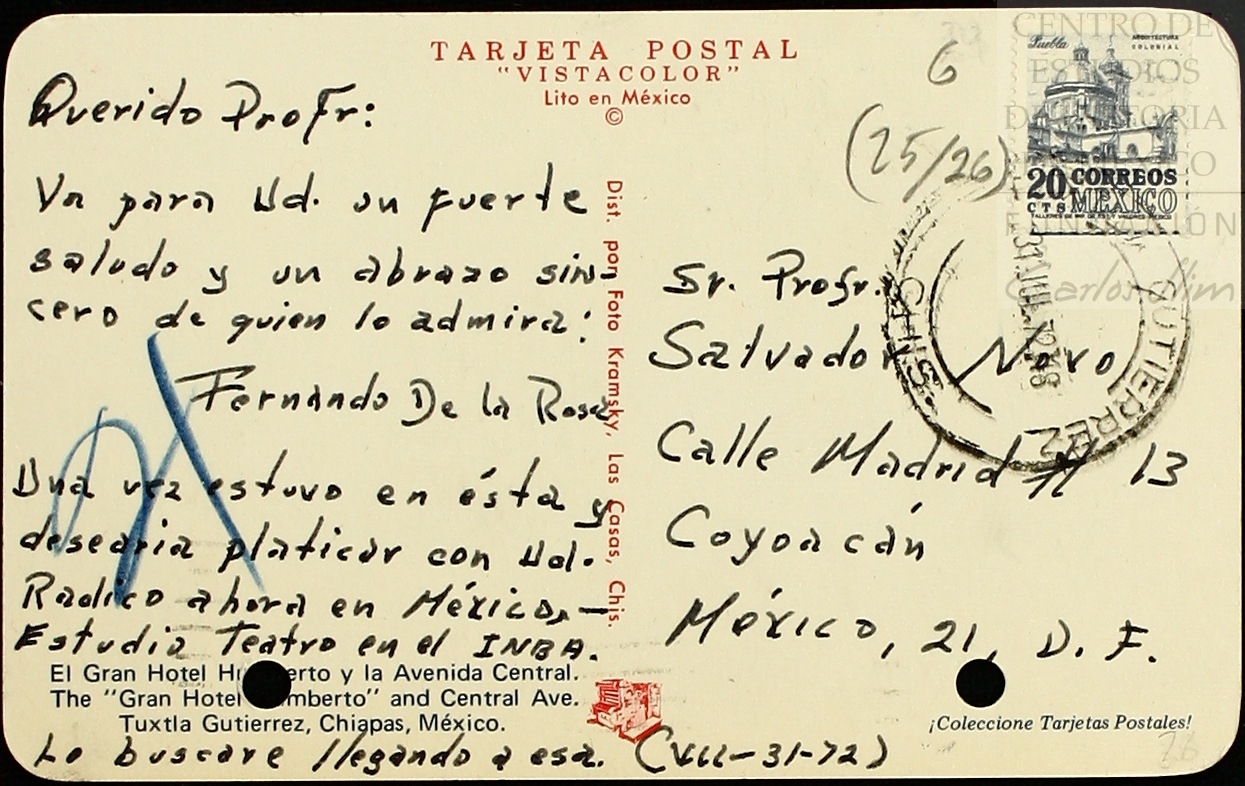 TARJETA POSTAL
"VISTACOLOR"
Lito en México
©
Querido Profr:
Va para Ud. un fuerte
saludo y un abrazo sin-
cero de quien lo admira:
Fernando De la Rosa
Una vez estuvo en ésta y
desearia platicar con Ud.
Radico ahora en México,—
Estudio Teatro en el INBA.
El Gran Hotel H erto y la Avenida Central.
The "Gran Hotel mberto" and Central Ave.
Tuxtla Gutierrez, Chiapas, México.
Lo buscare llegando a esa. (VII-31-72)
Dist. por Foto Kramsky, Las Casas, Chis.
6
(25/26)
Puebla
ARQUITECTURA
COLONIAL
20 CORREOS
CTS MEXICO
CENTRO DE
ESTUDIOS
DE HISTORIA
DE MÉXICO
FUNDACIÓN
Carlos Slim
GUTIERREZ
CHIS
Sr. Profr.
Salvador Novo
Calle Madrid # 13
Coyoacán
México, 21, D. F.
¡Coleccione Tarjetas Postales!
26